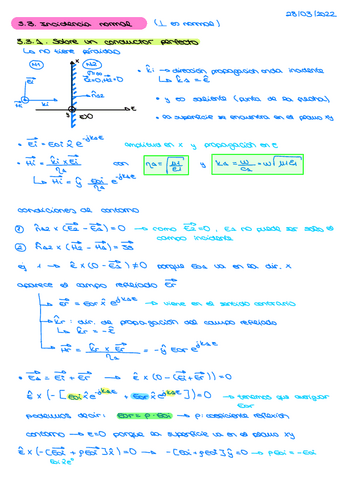 28/03/2022
3.3. Incidencia normal (⊥ es normal)
3.3.1. Sobre un conductor perfecto
↳ no tiene pérdidas
• k̂i → dirección propagación onda incidente
↳ k̂i = ẑ
• y es saliente (punta de la flecha)
• la superficie se encuentra en el plano xy
• Ei = Eoi x̂ e^-jk1z amplitud en x y propagación en z
• Hi = k̂i × Ei / η1 con η1 = √(μ1/ε1) y k1 = ω/c1 = ω√(μ1ε1)
↳ Hi = ŷ Eoi/η1 e^-jk1z
condiciones de contorno
① n̂12 × (E2 - E1) = 0 → como E2 = 0, E1 no puede ser solo el campo incidente
② n̂12 × (H2 - H1) = Js
ej 1 → ẑ × (0 - Ei) ≠ 0 porque Eoi va en la dir. x
aparece el campo reflejado Er
↳ Er = Eor x̂ e^jk1z → viene en el sentido contrario
↳ k̂r : dir. de propagación del campo reflejado
↳ k̂r = -ẑ
↳ Hr = k̂r × Er / η1 = -ŷ Eor e^jk1z
• E1 = Ei + Er → ẑ × (0 - (Ei + Er)) = 0
ẑ × (-[Eoi x̂ e^-jk1z + Eor x̂ e^jk1z]) = 0 → tenemos que averiguar Eor
podemos decir: Eor = ρ · Eoi → ρ: coeficiente reflexión
contorno → z=0 porque la superficie va en el plano xy
ẑ × (-[Eoi + ρEoi] x̂) = 0 → -[Eoi + ρEoi] ŷ = 0 → ρEoi = -Eoi